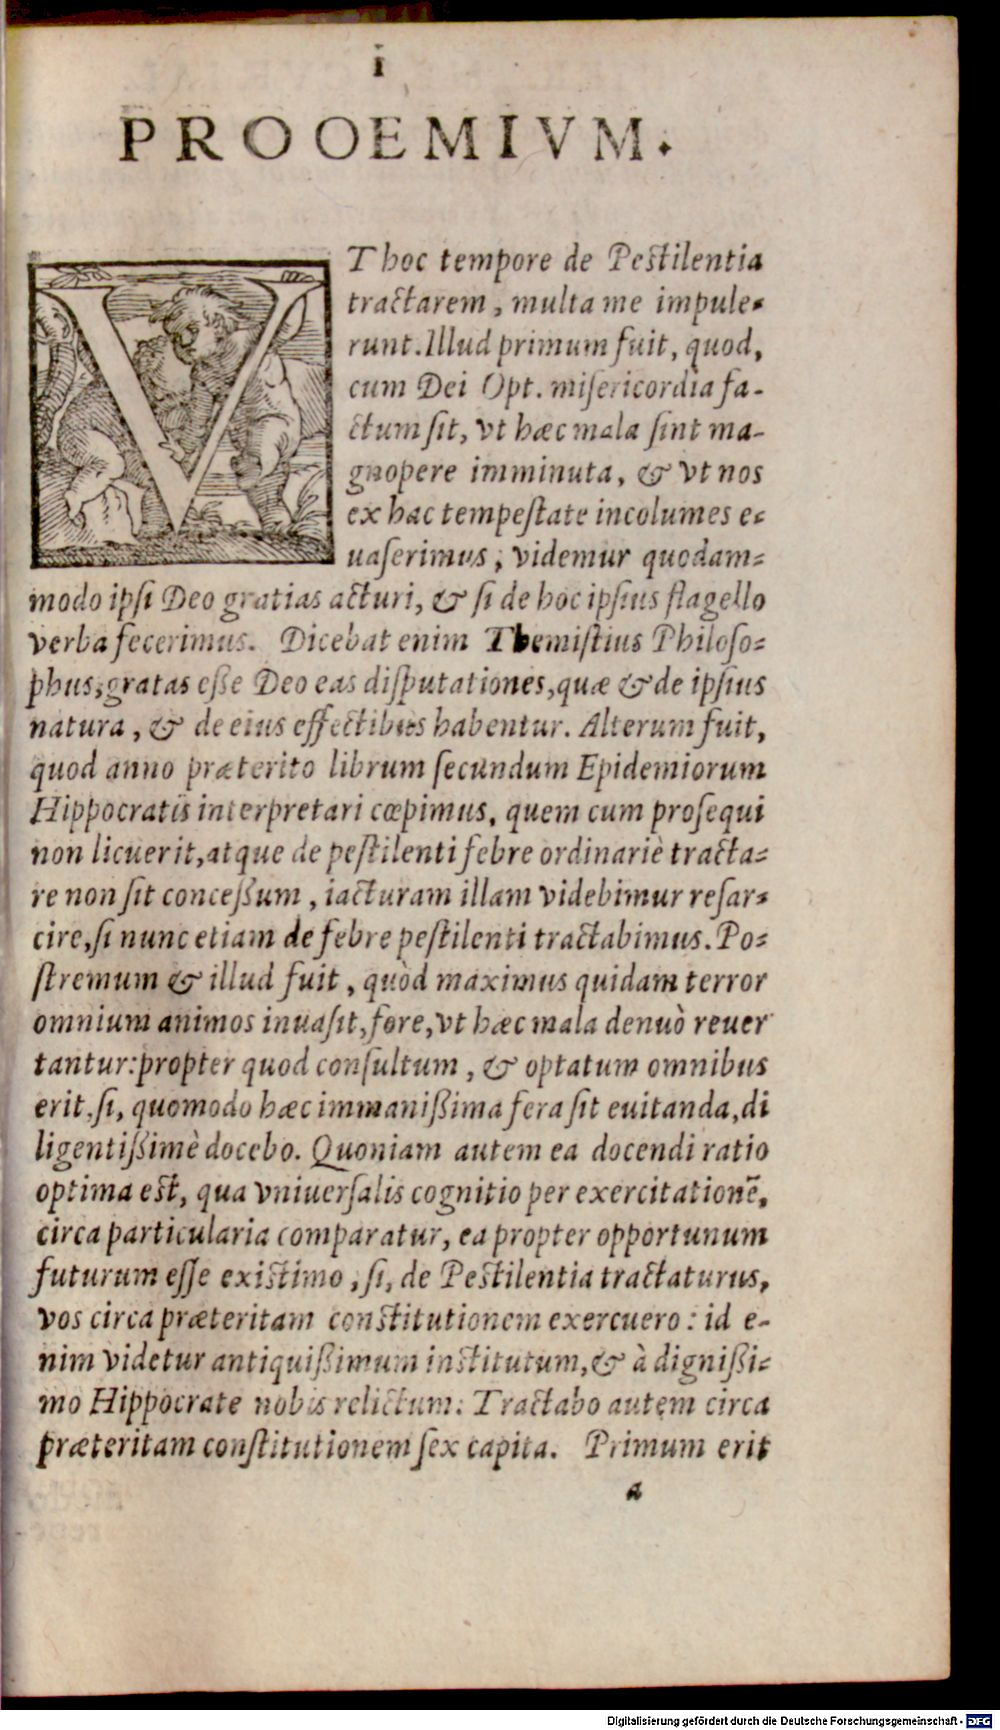 i
PROOEMIVM.
VT hoc tempore de Pestilentia
tractarem, multa me impule-
runt. Illud primum fuit, quod,
cum Dei Opt. miſericordia fa-
ctum ſit, vt hæc mala ſint ma-
gnopere imminuta, & vt nos
ex hac tempeſtate incolumes e-
uaſerimus, videmur quodam-
modo ipſi Deo gratias acturi, & ſi de hoc ipſius flagello
verba fecerimus. Dicebat enim Themiſtius Philoſo-
phus, gratas eſſe Deo eas diſputationes, quæ & de ipſius
natura, & de eius effectibus habentur. Alterum fuit,
quod anno præterito librum ſecundum Epidemiorum
Hippocratis interpretari cœpimus, quem cum proſequi
non licuerit, atque de peſtilenti febre ordinariè tracta-
re non ſit conceßum, iacturam illam videbimur reſar-
cire, ſi nunc etiam de febre peſtilenti tractabimus. Po-
ſtremum & illud fuit, quòd maximus quidam terror
omnium animos inuaſit, fore, vt hæc mala denuò reuer
tantur: propter quod conſultum, & optatum omnibus
erit, ſi, quomodo hæc immanißima fera ſit euitanda, di
ligentißimè docebo. Quoniam autem ea docendi ratio
optima est, qua vniuerſalis cognitio per exercitationē,
circa particularia comparatur, ea propter opportunum
futurum eſſe existimo, ſi, de Pestilentia tractaturus,
vos circa præteritam constitutionem exercuero: id e-
nim videtur antiquißimum institutum, & à dignißi-
mo Hippocrate nobis relictum: Tractabo autem circa
præteritam conſtitutionem ſex capita. Primum erit
a
Digitalisierung gefördert durch die Deutsche Forschungsgemeinschaft - DFG